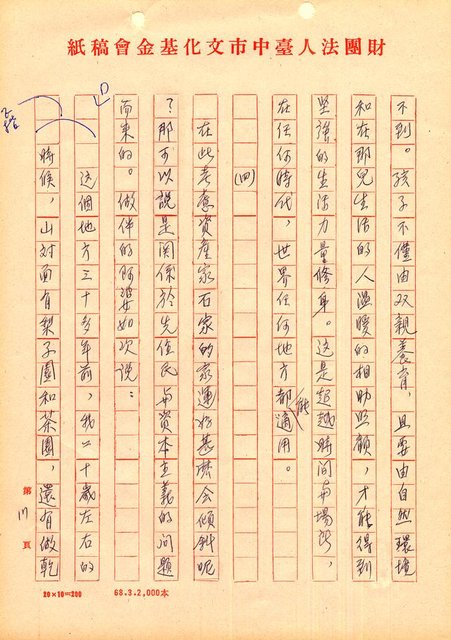 財團法人臺中市文化基金會稿紙
不到。孩子不僅由双親養育，且要由自然環境
和在那兒生活的人溫暖的相助照顧，才能得到
坚強的生活力量修身。这是超越時間与場所，
在任何時代，世界任何地方都能適用。
(四)
在此考慮資產家石家的家運好甚麼会傾斜呢
？那可以說是関係於先住民与資本主義的问題
而来的。做伴的阿婆如次說：
这個地方三十多年前，我二十歲左右的
時候，山对面有梨子園和茶園，還有做乾
第 17 頁
20×10=200
68.3.2,000本